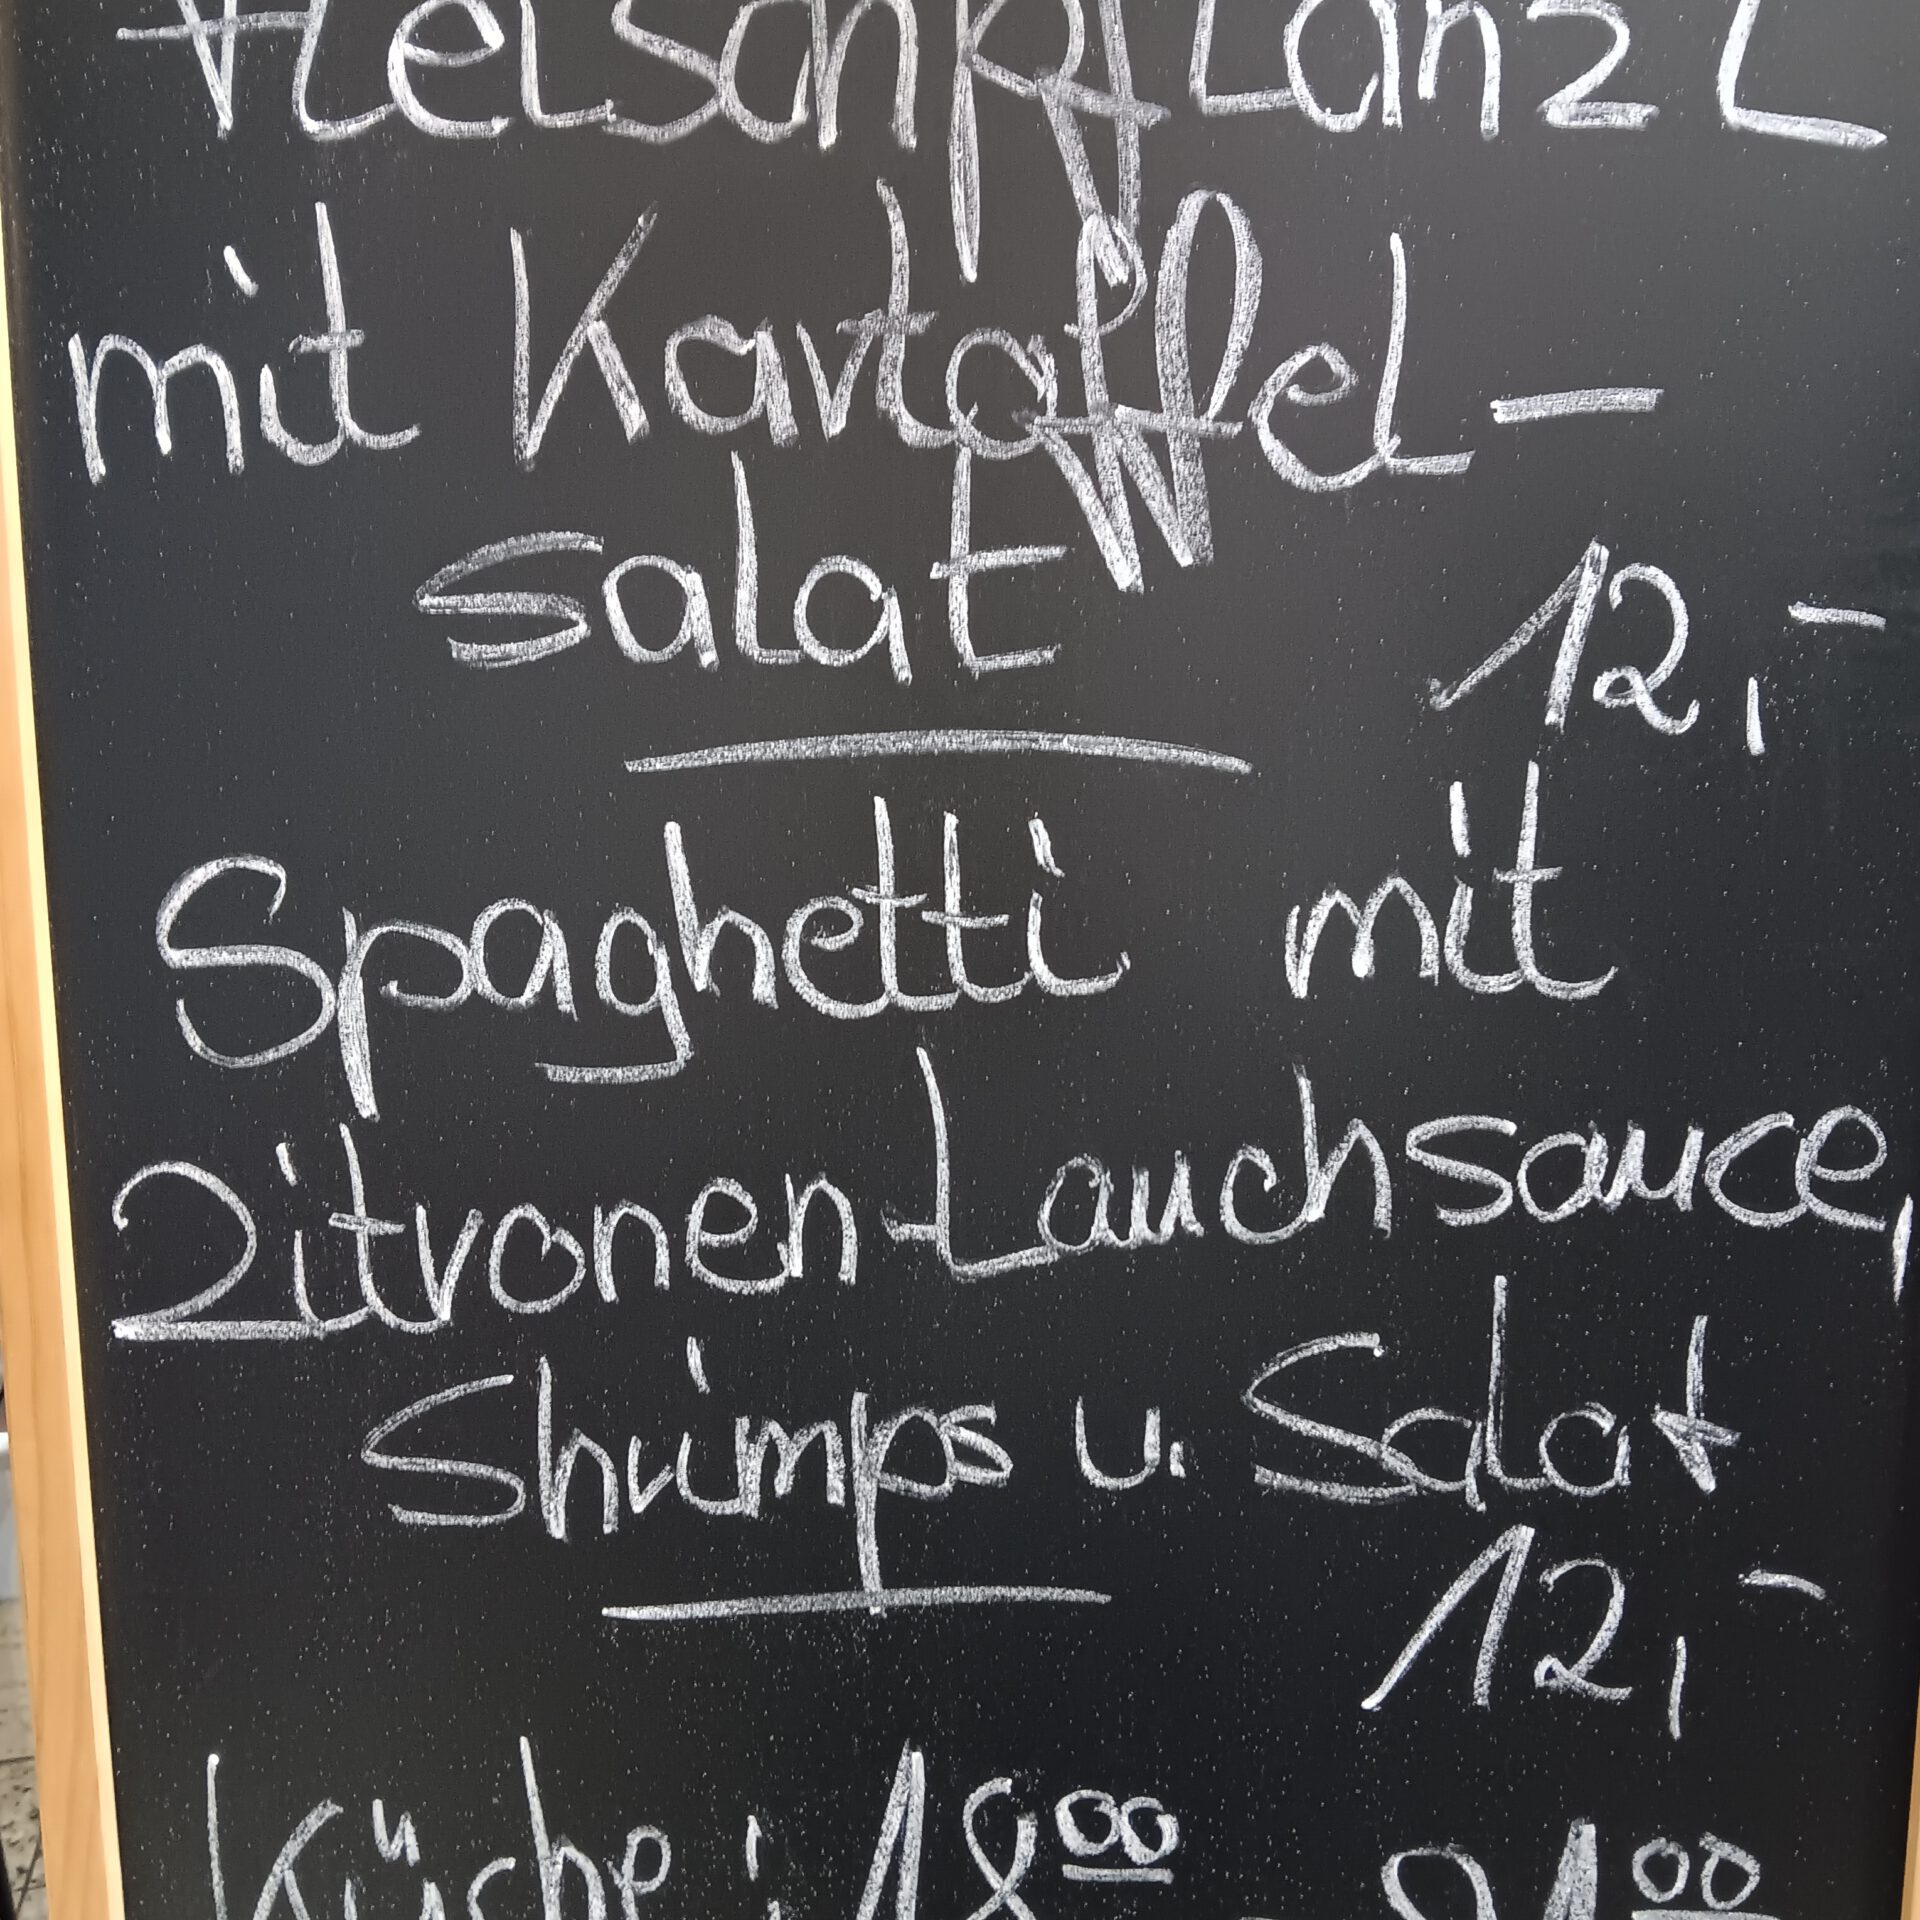 Fleischpflanzl
mit Kartoffel-
salat
12,-
Spaghetti mit
Zitronen-Lauchsauce,
Shrimps u. Salat
12,-
Küche: 18 00 - 21 00